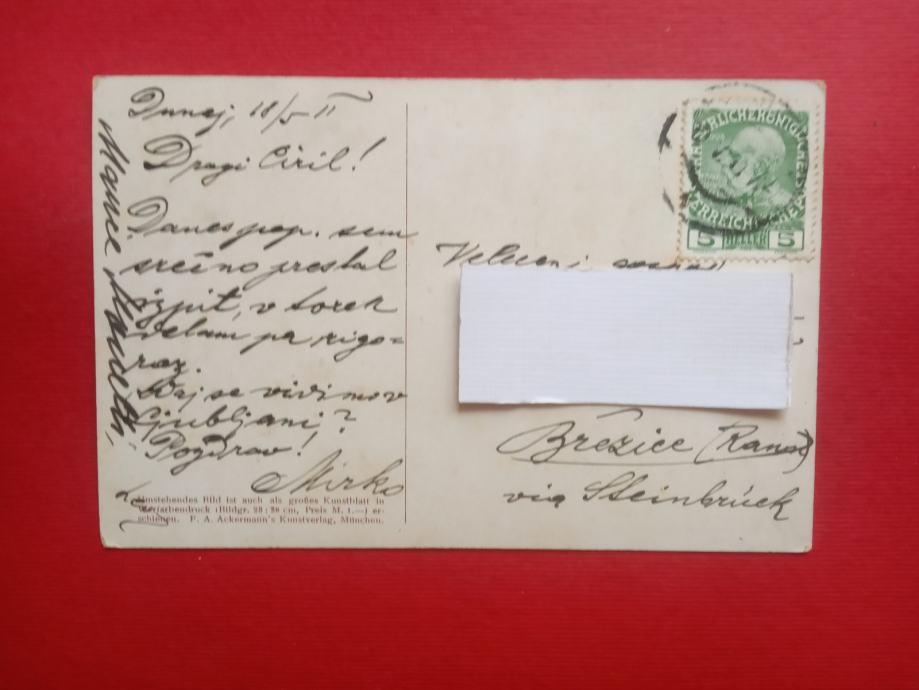 Dunaj, 18/5 11
Dragi Ciril!
Danes pop. sem
srečno prestal
izpit, v torek
delam pa rigo=
roz.
Kaj se vidimo v
Ljubljani?
Pozdrav!
Mirko
Umstehendes Bild ist auch als großes Kunstblatt in
Vierfarbendruck (Bildgr. 28:38 cm, Preis M. 1.—) er-
schienen. F. A. Ackermann's Kunstverlag, München.
5 HELLER 5
Velecenj
Brežice (Rann)
via Steinbrück